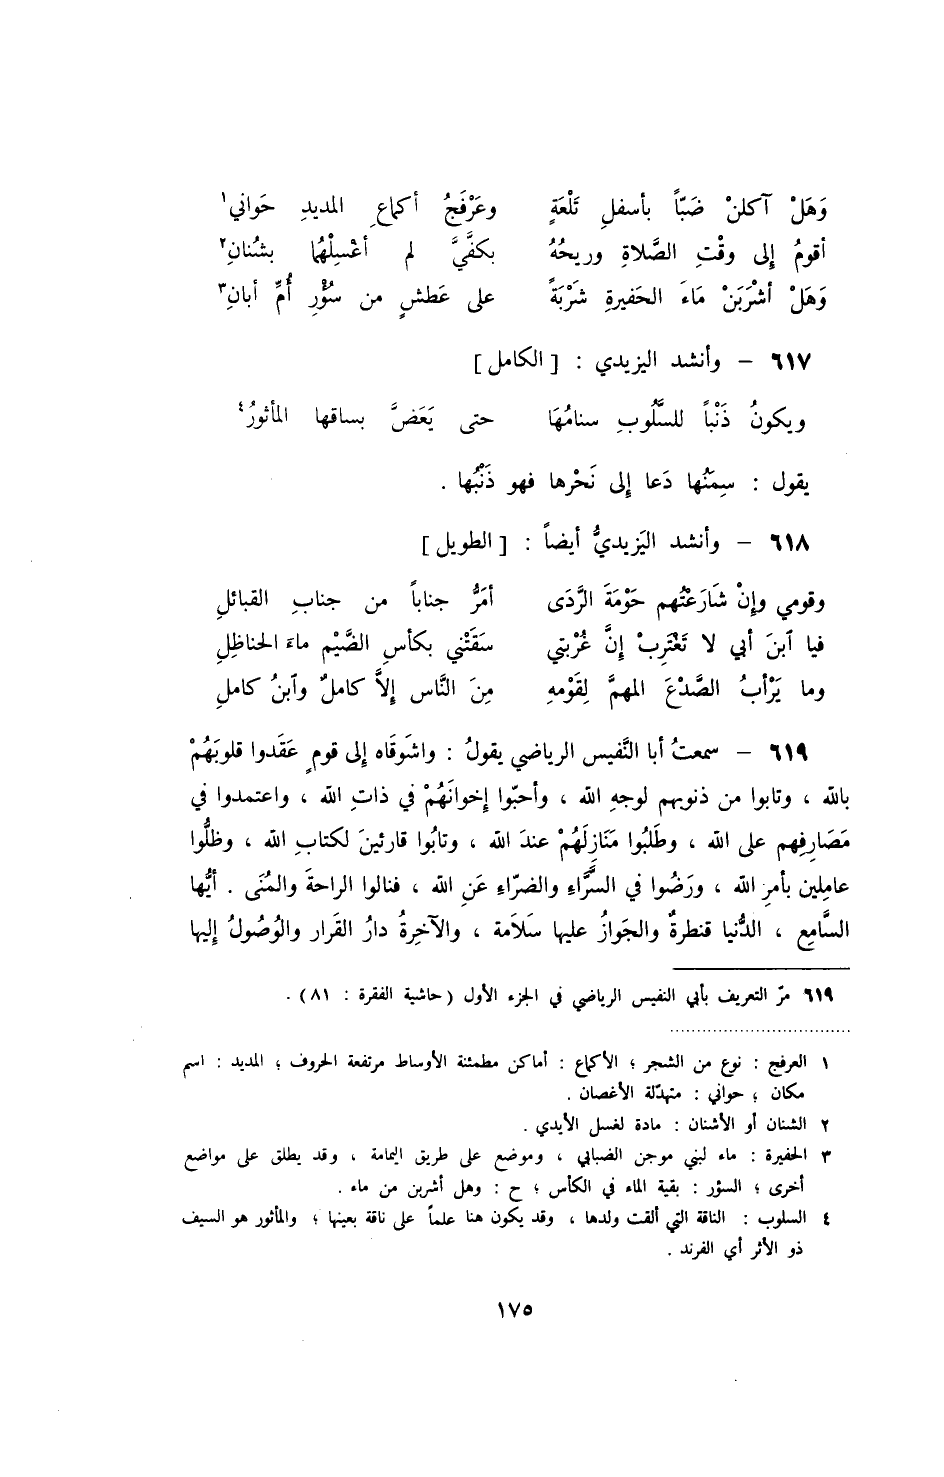 وَهَلْ آكلنْ ضَبّاً بأسفلِ تَلْعَةٍ وعَرْفَجُ أكماعِ المديدِ حَواني١
أقومُ إلى وقْتِ الصَّلاةِ وريحُهُ بكفَّيَّ لم أغْسِلْهُما بشُنانِ٢
وَهَلْ أشْرَبَنْ مَاءَ الحَفيرةِ شَرْبَةً على عَطشٍ من سُؤْرِ أُمِّ أبانِ٣
٦١٧ – وأنشد اليزيدي : [ الكامل ]
ويكونُ ذَنْباً للسَّلُوبِ سنامُهَا حتى يَعَضَّ بساقها المأثورُ٤
يقول : سِمَنُها دَعا إلى نَحْرها فهو ذَنْبُها .
٦١٨ – وأنشد اليَزيديُّ أيضاً : [ الطويل ]
وقومي وإنْ شَارَعْتُهم حَوْمَةَ الرَّدَى أمَرُّ جناباً من جنابِ القبائلِ
فيا ٱبنَ أبي لا تَغْتَرِبْ إنَّ غُرْبتي سَقَتْني بكأسِ الضَّيْم ماءَ الحناظِلِ
وما يَرْأبُ الصَّدْعَ المهمَّ لِقَوْمهِ مِنَ النَّاس إلاَّ كاملٌ وٱبنُ كاملِ
٦١٩ – سمعتُ أبا النَّفيس الرياضي يقولُ : واشَوقَاه إلى قومٍ عَقَدوا قلوبَهُمْ
بالله ، وتابوا من ذنوبهم لوجهِ الله ، وأحبّوا إخوانَهُمْ في ذاتِ الله ، واعتمدوا في
مَصَارِفِهم على الله ، وطَلَبُوا مَنَازِلَهُمْ عندَ الله ، وتابُوا قارئينَ لكتابِ الله ، وظلُّوا
عامِلين بأمرِ الله ، ورَضُوا في السَّرَّاءِ والضرّاءِ عَنِ الله ، فنالوا الراحةَ والمُنَى . أيُّها
السَّامِع ، الدُّنيا قنطرةٌ والجَوازُ عليها سَلاَمة ، والآخِرةُ دارُ القَرار والوُصُولُ إليها
٦١٩ مرّ التعريف بأبي النفيس الرياضي في الجزء الأول (حاشية الفقرة : ٨١) .
١ العرفج : نوع من الشجر ؛ الأكماع : أماكن مطمئنة الأوساط مرتفعة الحروف ؛ المديد : اسم
مكان ؛ حواني : متهدّلة الأغصان .
٢ الشنان أو الأشنان : مادة لغسل الأيدي .
٣ الحفيرة : ماء لبني موجن الضبابي ، وموضع على طريق اليمامة ، وقد يطلق على مواضع
أخرى ؛ السؤر : بقية الماء في الكأس ؛ ح : وهل أشربن من ماء .
٤ السلوب : الناقة التي ألقت ولدها ، وقد يكون هنا علماً على ناقة بعينها ؛ والمأثور هو السيف
ذو الأثر أي الفرند .
١٧٥